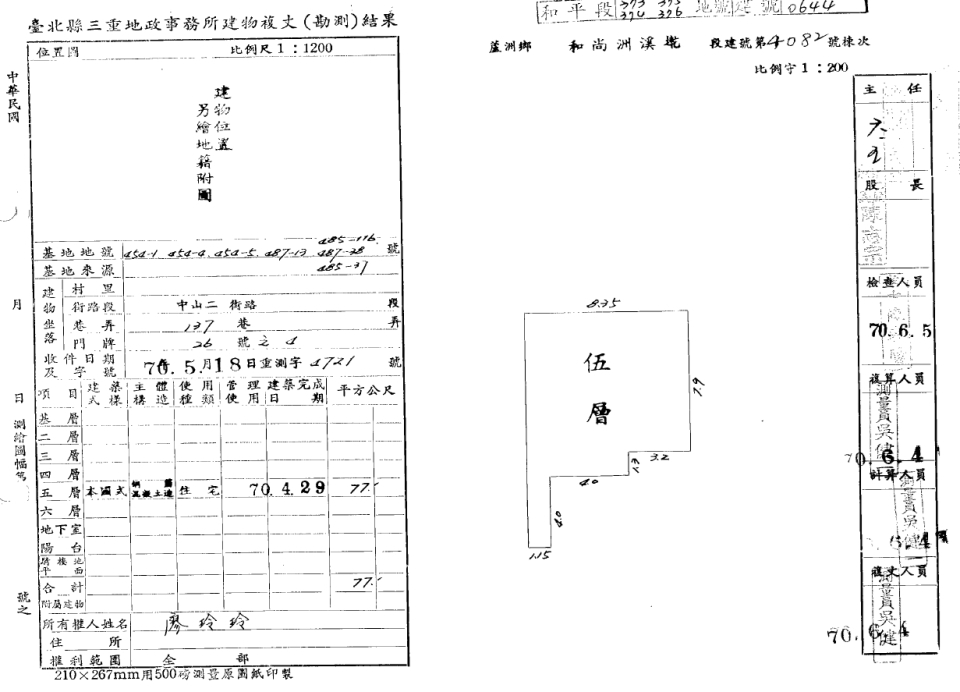 臺北縣三重地政事務所建物複丈(勘測)結果
和平段 373 373 374 376 地號建號 0644
蘆洲鄉 和尚洲溪墘 段建號第4082號棟次
比例守1:200
位置圖 比例尺1:1200
中華民國
月
日
測繪圖幅第
號之
建物位置
另繪地籍附圖
基地地號 454-1 454-4 454-5 487-13 487-38 485-116 號
基地來源 485-37
建物坐落
村里
街路段 中山二 街路 段
巷弄 137 巷 弄
門牌 26 號之4
收件日期及字號 70年5月18日重測字4721 號
項目 建築式樣 主體構造 使用種類 管理使用 建築完成日期 平方公尺
基層
二層
三層
四層
五層 本國式 鋼筋混凝土造 住宅 70.4.29 77.
六層
地下室
陽台
騎樓地平面
合計 77.
附屬建物
所有權人姓名 廖玲玲
住所
權利範圍 全部
210×267mm用500磅測量原圖紙印製
8.35
伍層
7.9
3.2
1.3
4.0
4.0
1.15
主任
股長
檢查人員
70.6.5
複算人員
測量員吳健
70.6.4
計算人員
測量員吳健
6.4
複丈人員
測量員吳健
70.6.4